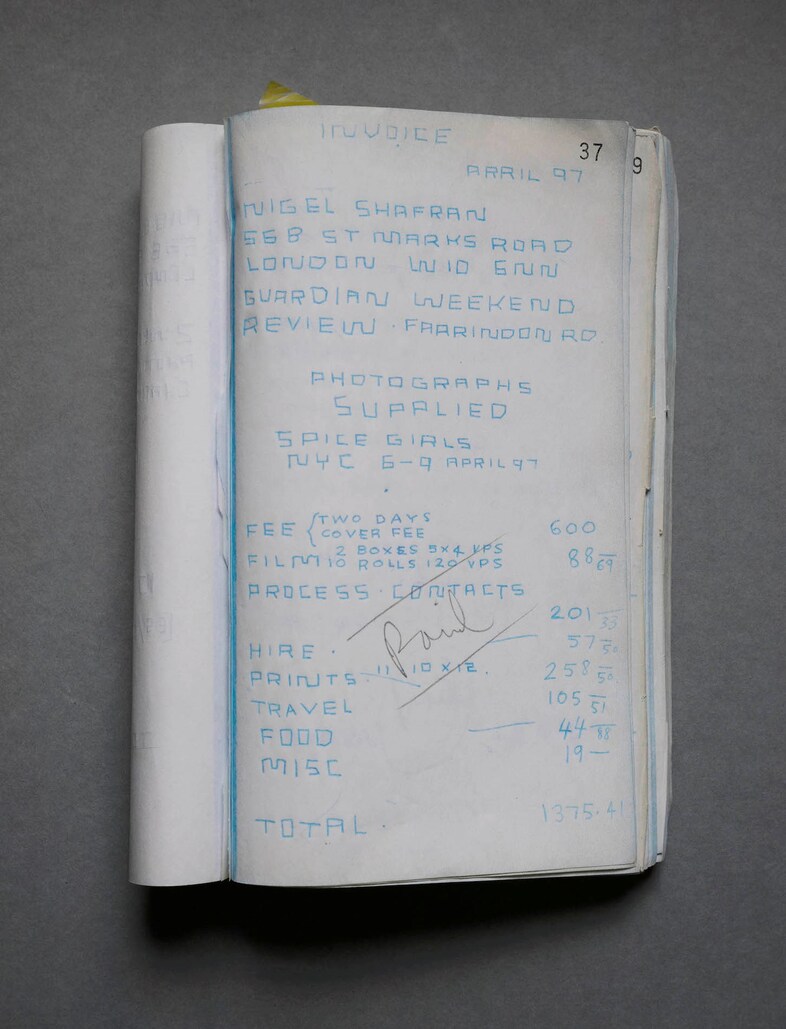 INVOICE
37
9
APRIL 97
NIGEL SHAFRAN
56B ST MARKS ROAD
LONDON W10 6NN
GUARDIAN WEEKEND
REVIEW · FARRINDON RD.
PHOTOGRAPHS
SUPPLIED
SPICE GIRLS
NYC 6-9 APRIL 97
FEE { TWO DAYS
COVER FEE 600
FILM 2 BOXES 5x4 VPS
10 ROLLS 120 VPS 88 69
PROCESS · CONTACTS
201 33
Paid
HIRE · 57 50
PRINTS · 11 10 x 12. 258 50
TRAVEL 105 51
FOOD 44 88
MISC 19 —
TOTAL · 1375.41